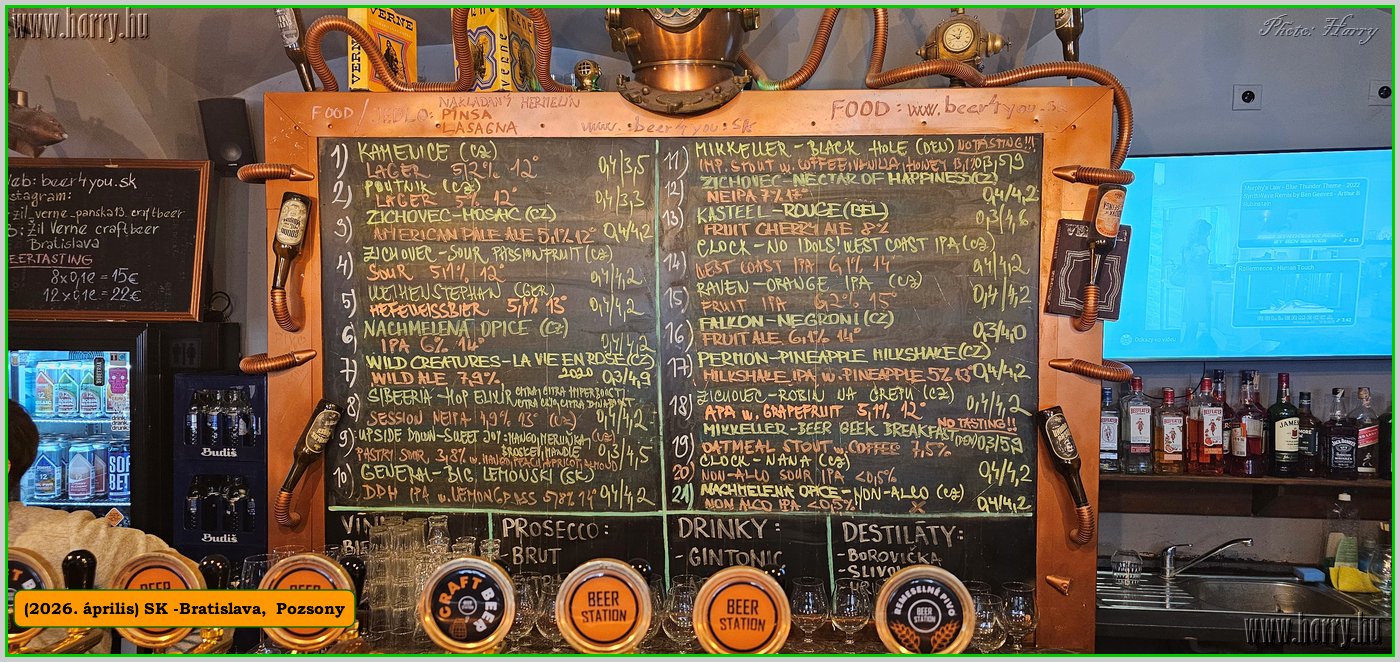 www.harry.hu
Photo: Harry
VERNE
VERNE
FOOD / JEDLO:
NAKLADANÝ HERMELIN
PINSA
LASAGNA
www.beer4you.sk
FOOD: www.beer4you.sk
Web: beer4you.sk
Instagram:
zil_verne_panska13_craftbeer
FB: Žil Verne craftbeer
Bratislava
BEERTASTING
8x0,1ℓ = 15€
12x0,1ℓ = 22€
1) KAMENICE (CZ)
LAGER 5,2% 12° 0,4/3,5
2) POUTNIK (CZ)
LAGER 5% 12° 0,4/3,3
3) ZICHOVEC-MOSAIC (CZ)
AMERICAN PALE ALE 5,1% 12° 0,4/4,2
4) ZICHOVEC-SOUR PASSIONFRUIT (CZ)
SOUR 5,1% 12° 0,4/4,2
5) WEIHENSTEPHAN (GER)
HEFEWEISSBIER 5,4% 13° 0,4/4,2
6 NACHMELENÁ OPICE (CZ)
IPA 6% 14° 0,4/4,2
7) WILD CREATURES-LA VIE EN ROSE (CZ)
WILD ALE 7,9% 2020 0,3/4,9
8) SIBEERIA-HOP ELIXIR
SESSION NEIPA 4,9% 13° (CZ) 0,4/4,2
9) UPSIDE DOWN-SWEET JOY-MANGO, MERUŇKA (CZ)
BROSKEV, MANDLE
PASTRY SOUR, 3,8% w. MANGO, PEACH, APRICOT, ALMOND 0,3/4,5
10) GENERAL-BIG LEMONSKI (SK)
DDH IPA w. LEMONGRASS 5,8% 14° 0,4/4,2
11) MIKKELLER-BLACK HOLE (DEN) NO TASTING!!
IMP. STOUT w. COFFEE, VANILLA, HONEY 13,1% 0,3/5,9
12) ZICHOVEC-NECTAR OF HAPPINESS (CZ)
NEIPA 7% 17° 0,4/4,2
13) KASTEEL-ROUGE (BEL)
FRUIT CHERRY ALE 8% 0,3/4,6
14) CLOCK-NO IDOLS! WEST COAST IPA (CZ)
WEST COAST IPA 6,1% 14° 0,4/4,2
15) RAVEN-ORANGE IPA (CZ)
FRUIT IPA 6,2% 15° 0,4/4,2
16) FALKON-NEGRONI (CZ)
FRUIT ALE 6,1% 14° 0,3/4,0
17) PERMON-PINEAPPLE MILKSHAKE (CZ)
MILKSHAKE IPA w. PINEAPPLE 5% 13° 0,4/4,2
18) ZICHOVEC-ROBIN NA GREPU (CZ)
APA w. GRAPEFRUIT 5,1% 12° 0,4/4,2
19) MIKKELLER-BEER GEEK BREAKFAST (DEN) NO TASTING!!
OATMEAL STOUT w. COFFEE 7,5% 0,3/5,9
20) CLOCK-NANA (CZ)
NON-ALCO SOUR IPA <0,5% 0,4/4,2
21) NACHMELENÁ OPICE-NON-ALCO (CZ)
NON ALCO IPA <0,3% 0,4/4,2
PROSECCO:
-BRUT
DRINKY:
-GINTONIC
DESTILÁTY:
-BOROVIČKA
-SLIVOV
Budiš
Budiš
CRAFT BEER
BEER STATION
BEER STATION
REMESELNÉ PIVO
BEER STATION
JAMESON
(2026. április) SK -Bratislava, Pozsony
www.harry.hu